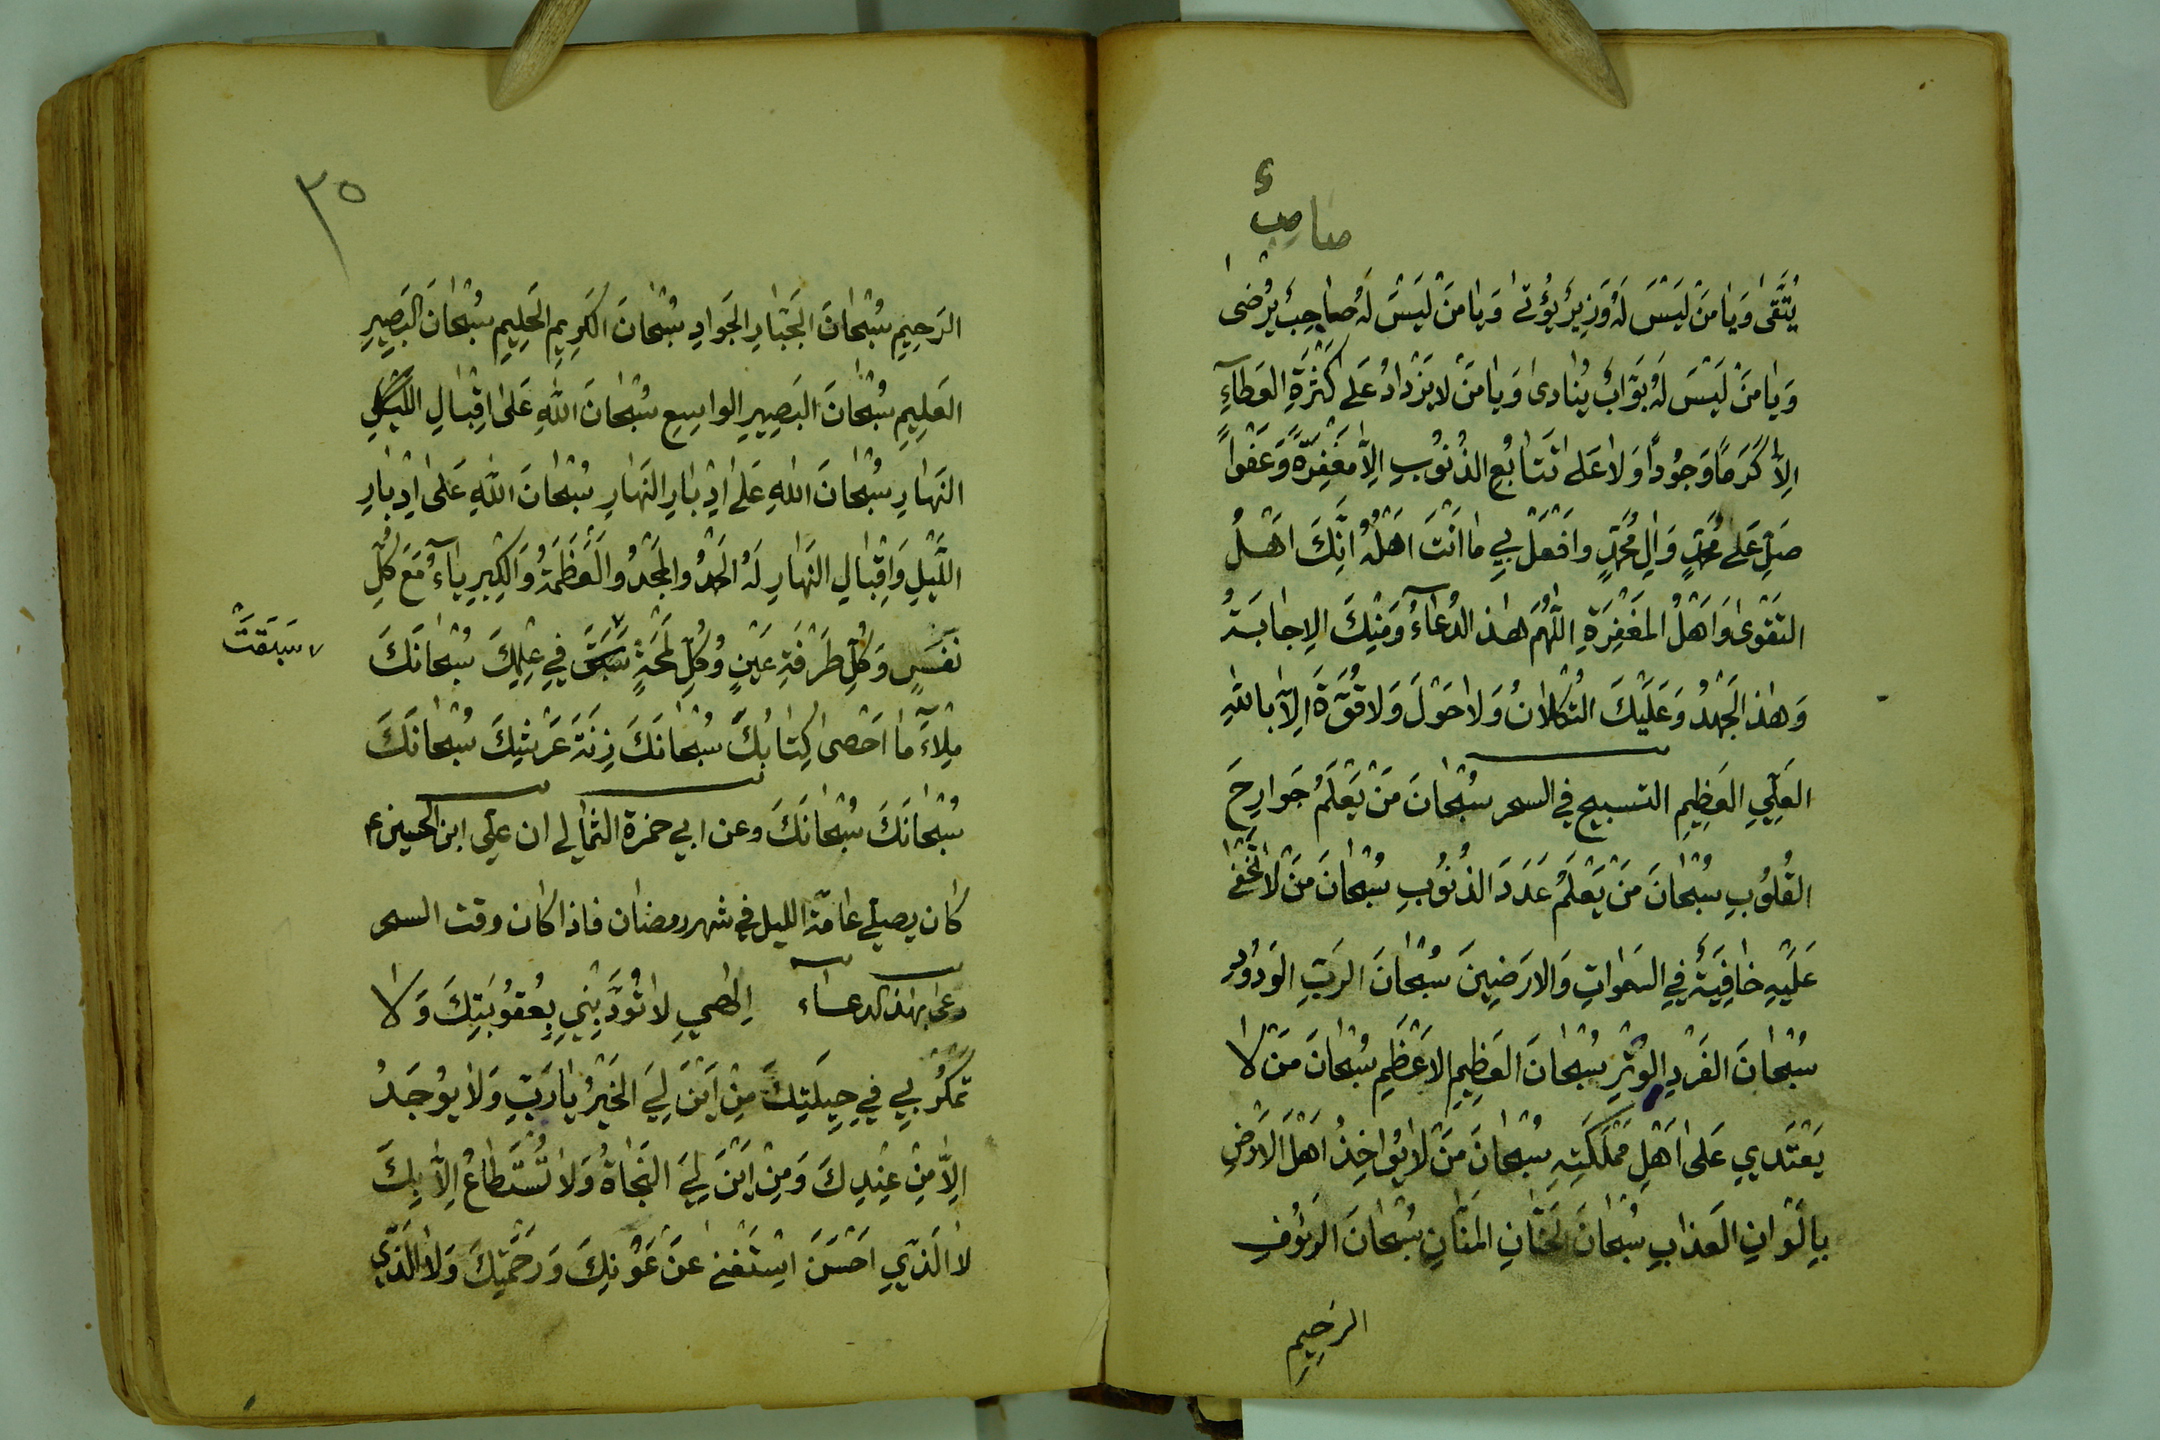 صاحبٌ
يُتَّقىٰ وَيٰامَنْ لَيْسَ لَهُ وَزِيرٌ يُؤْتىٰ وَيٰامَنْ لَيْسَ لَهُ صٰاحِبٌ يُرْضىٰ
وَيٰامَنْ لَيْسَ لَهُ بَوّٰابٌ يُنٰادىٰ وَيٰامَنْ لايَزْدٰادُ عَلىٰ كَثْرَةِ العَطٰآءِ
اِلاّٰ كَرَمًا وَجُودًا وَلاٰ عَلىٰ تَتٰابُعِ الذُنُوبِ اِلاّٰ مَغْفِرَةً وَعَفْوًا
صَلِّ عَلىٰ مُحَمَّدٍ وَاٰلِ مُحَمَّدٍ وافْعَلْ بِي مٰا اَنْتَ اَهْلُهُ اِنَّكَ اَهْلُ
التَقْوىٰ وَاَهْلُ المَغْفِرَةِ اللّٰهُمَّ هٰذا الدُعٰآءُ وَمِنْكَ الاِجٰابَةُ
وَهٰذا الجَهْدُ وَعَلَيْكَ التُكْلانُ وَلاٰحَوْلَ وَلاٰ قُوَّةَ اِلاّٰ بِاللّٰهِ
العَلِيِّ العَظِيمِ التسبيح في السحر سُبْحٰانَ مَنْ يَعْلَمُ جَوٰارِحَ
القُلُوبِ سُبْحٰانَ مَنْ يَعْلَمُ عَدَدَ الذُنُوبِ سُبْحٰانَ مَنْ لاٰتَخْفىٰ
عَلَيْهِ خٰافِيَةٌ فِي السَمٰوٰاتِ وَالاَرَضِينَ سُبْحٰانَ الرَبِّ الوَدُودِ
سُبْحٰانَ الفَرْدِ الوِتْرِ سُبْحٰانَ العَظِيمِ الاَعْظَمِ سُبْحٰانَ مَنْ لاٰ
يَعْتَدِي عَلىٰ اَهْلِ مَمْلَكَتِهِ سُبْحٰانَ مَنْ لاٰيُؤٰاخِذُ اَهْلَ الاَرْضِ
بِاَلْوٰانِ العَذٰابِ سُبْحٰانَ الحَنّٰانِ المَنّٰانِ سُبْحٰانَ الرَؤُفِ
الرَحِيمِ
٣٥
الرَحِيمِ سُبْحٰانَ الجَبّٰارِ الجَوٰادِ سُبْحٰانَ الكَرِيمِ الحَلِيمِ سُبْحٰانَ البَصِيرِ
العَلِيمِ سُبْحٰانَ البَصِيرِ الوٰاسِعِ سُبْحٰانَ اللّٰهِ عَلىٰ اِقْبٰالِ اللَيْلِ
النَهٰارِ سُبْحٰانَ اللّٰهِ عَلىٰ اِدْبٰارِ النَهٰارِ سُبْحٰانَ اللّٰهِ عَلىٰ اِدْبٰارِ
اللَيْلِ وَاِقْبٰالِ النَهٰارِ لَهُ الحَمْدُ وَالمَجْدُ وَالعَظَمَةُ وَالكِبْرِيٰآءُ مَعَ كُلِّ
نَفَسٍ وَكُلِّ طَرْفَةِ عَيْنٍ وَكُلِّ لَمْحَةٍ سَبَقَ فِي عِلْمِكَ سُبْحٰانَكَ
سَبَقَتْ
مِلْاَءَ مٰا اَحْصىٰ كِتٰابُكَ سُبْحٰانَكَ زِنَةَ عَرْشِكَ سُبْحٰانَكَ
سُبْحٰانَكَ سُبْحٰانَكَ وعن ابي حمزة الثمٰالي ان علي ابن الحسين ع
كان يصلي عامّة الليل في شهر رمضان فاذا كان وقت السحر
دعى بهذا الدعاء اِلٰهِي لاٰتُؤَدِّبْنِي بِعُقُوبَتِكَ وَلاٰ
تَمْكُرْ بِي فِي حِيلَتِكَ مِنْ اَيْنَ لِيَ الخَيْرُ يٰارَبِّ وَلاٰ يُوْجَدُ
اِلاّٰ مِنْ عِنْدِكَ وَمِنْ اَيْنَ لِيَ النَجٰاةُ وَلاٰ تُسْتَطٰاعُ اِلاّٰ بِكَ
لاٰ الَّذِي اَحْسَنَ اسْتَغْنىٰ عَنْ عَوْنِكَ وَرَحْمَتِكَ وَلاٰ الَّذِي